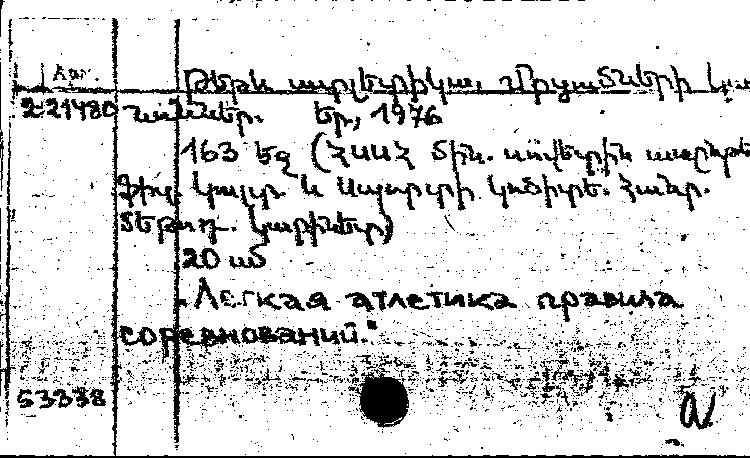 Թեթև ատլետիկա. Մրցումների կա
2-21480 նոններ. Եր., 1976
163 եզ (ՀՍՍՀ Մին. սովետին առընթեր
ֆիզ. կուլտ. և սպորտի կոմիտե. Հանր.
մեթոդ. կաբինետ)
20 սմ
„Легкая атлетика правила
соревнований."
53338